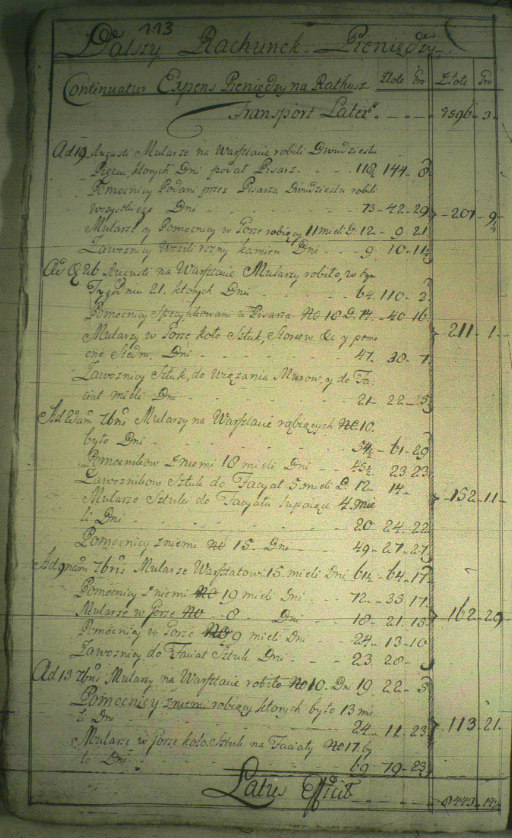 113
Dalszy Rachunek Pieniędzy
Continuatur Expens Pieniędzy na Rathusz Złote Gro Złote Gro
Transport Lateris - - - - 9596 - 3
Ad 19 Augusti Mularze na Warsztacie robili Dwudziestu
Pięciu których Dni podał Pisarz - - 118 144 - 8
Pomocnicy Podani przez Pisarza Dwudziestu robili
wszystkiego Dni - - - 73 - 42 - 29
207 - 9
Mularzy y Pomocnicy w Porze robiący 11 mieli D. 12 - 9 21
Lawosnicy Wozili rozny kamien Dni - - 9 10 - 11
Ad 26 Augusti na Warsztacie Mularzy robiło, w tym
Tygodniu 21. których Dni - - - 64. 110 - 2
Pomocnicy Specyfikowani u Pisarza No 18 D. 74 - 40 - 16
211 - 1
Mularzy w Porze koło Sztuk, &c y pomo
cne Dni - - 47. 30 - 7
Lawosnicy Sztuk, do Wiązania Murow, y do Fa
ciat mieli Dni - - - 21 - 22 - 25
7bris Mularzy na Warsztacie robiących No 10.
było Dni - - - 61 - 29
Pomocnikow z niemi 18 mieli Dni - - 23 23
Lawosnikow Sztuk do Facyat 5 mieli D. 12 - 14 -
152 - 11
Mularze Sztuki do Facyaty 4. mie
li Dni - - - 20 24 - 22
Pomocnicy z niemi No 15. Dni - - 49 - 27 - 27
7bris Mularze Warsztatow 15. mieli Dni 64 - 17
Pomocnicy z niemi No 19 mieli Dni - - 72 - 35 17
Mularze w Porze No - 8 - Dni - - 18 - 21 - 18
162 - 29
Pomocnicy w Porze No 9 mieli Dni - - 24 - 13 - 10
Lawosnicy do Faciat Sztuk Dni - - 23 28 -
Ad 13 7bris Mularzy na Warsztacie robiło No 10. Dni 19 22 - 3
Pomocnicy z niemi robiący których było 13 mie
li Dni - - - 24 - 11 - 23
113 - 21
Mularze w Porze koło Sztuk na Faciaty No 17. by
ło Dni - - - 69 - 79 - 23
Latus Efficit - 8443 -